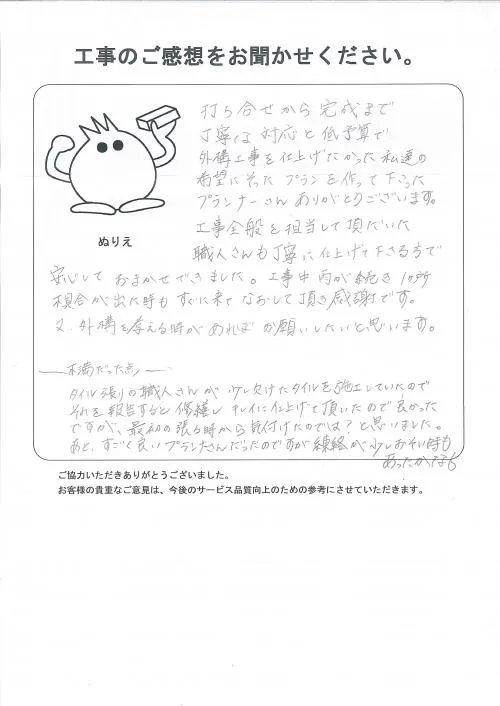 工事のご感想をお聞かせください。
打ち合せから完成まで
丁寧な対応と低予算で
外構工事を仕上げたかった私達の
希望にそったプランを作って下さった
プランナーさんありがとうございます。
工事全般を担当して頂だいた
職人さんも丁寧に仕上げて下さる方で
ぬりえ
安心しておまかせできました。工事中雨が続き1ヶ所
具合が出た時もすぐに来てなおして頂き感謝です。
又、外構を考える時があればお願いしたいと思います。
不満だった点
タイル張りの職人さんが少し欠けたタイルを施工していたので
それを報告すると修繕しキレイに仕上げて頂いたので良かった
ですが、最初の張る時から気付けたのでは?と思いました。
あと、すごく良いプランナさんだったのですが練絡が少しおそい時も
あったかなぁ
ご協力いただきありがとうございました。
お客様の貴重なご意見は、今後のサービス品質向上のための参考にさせていただきます。